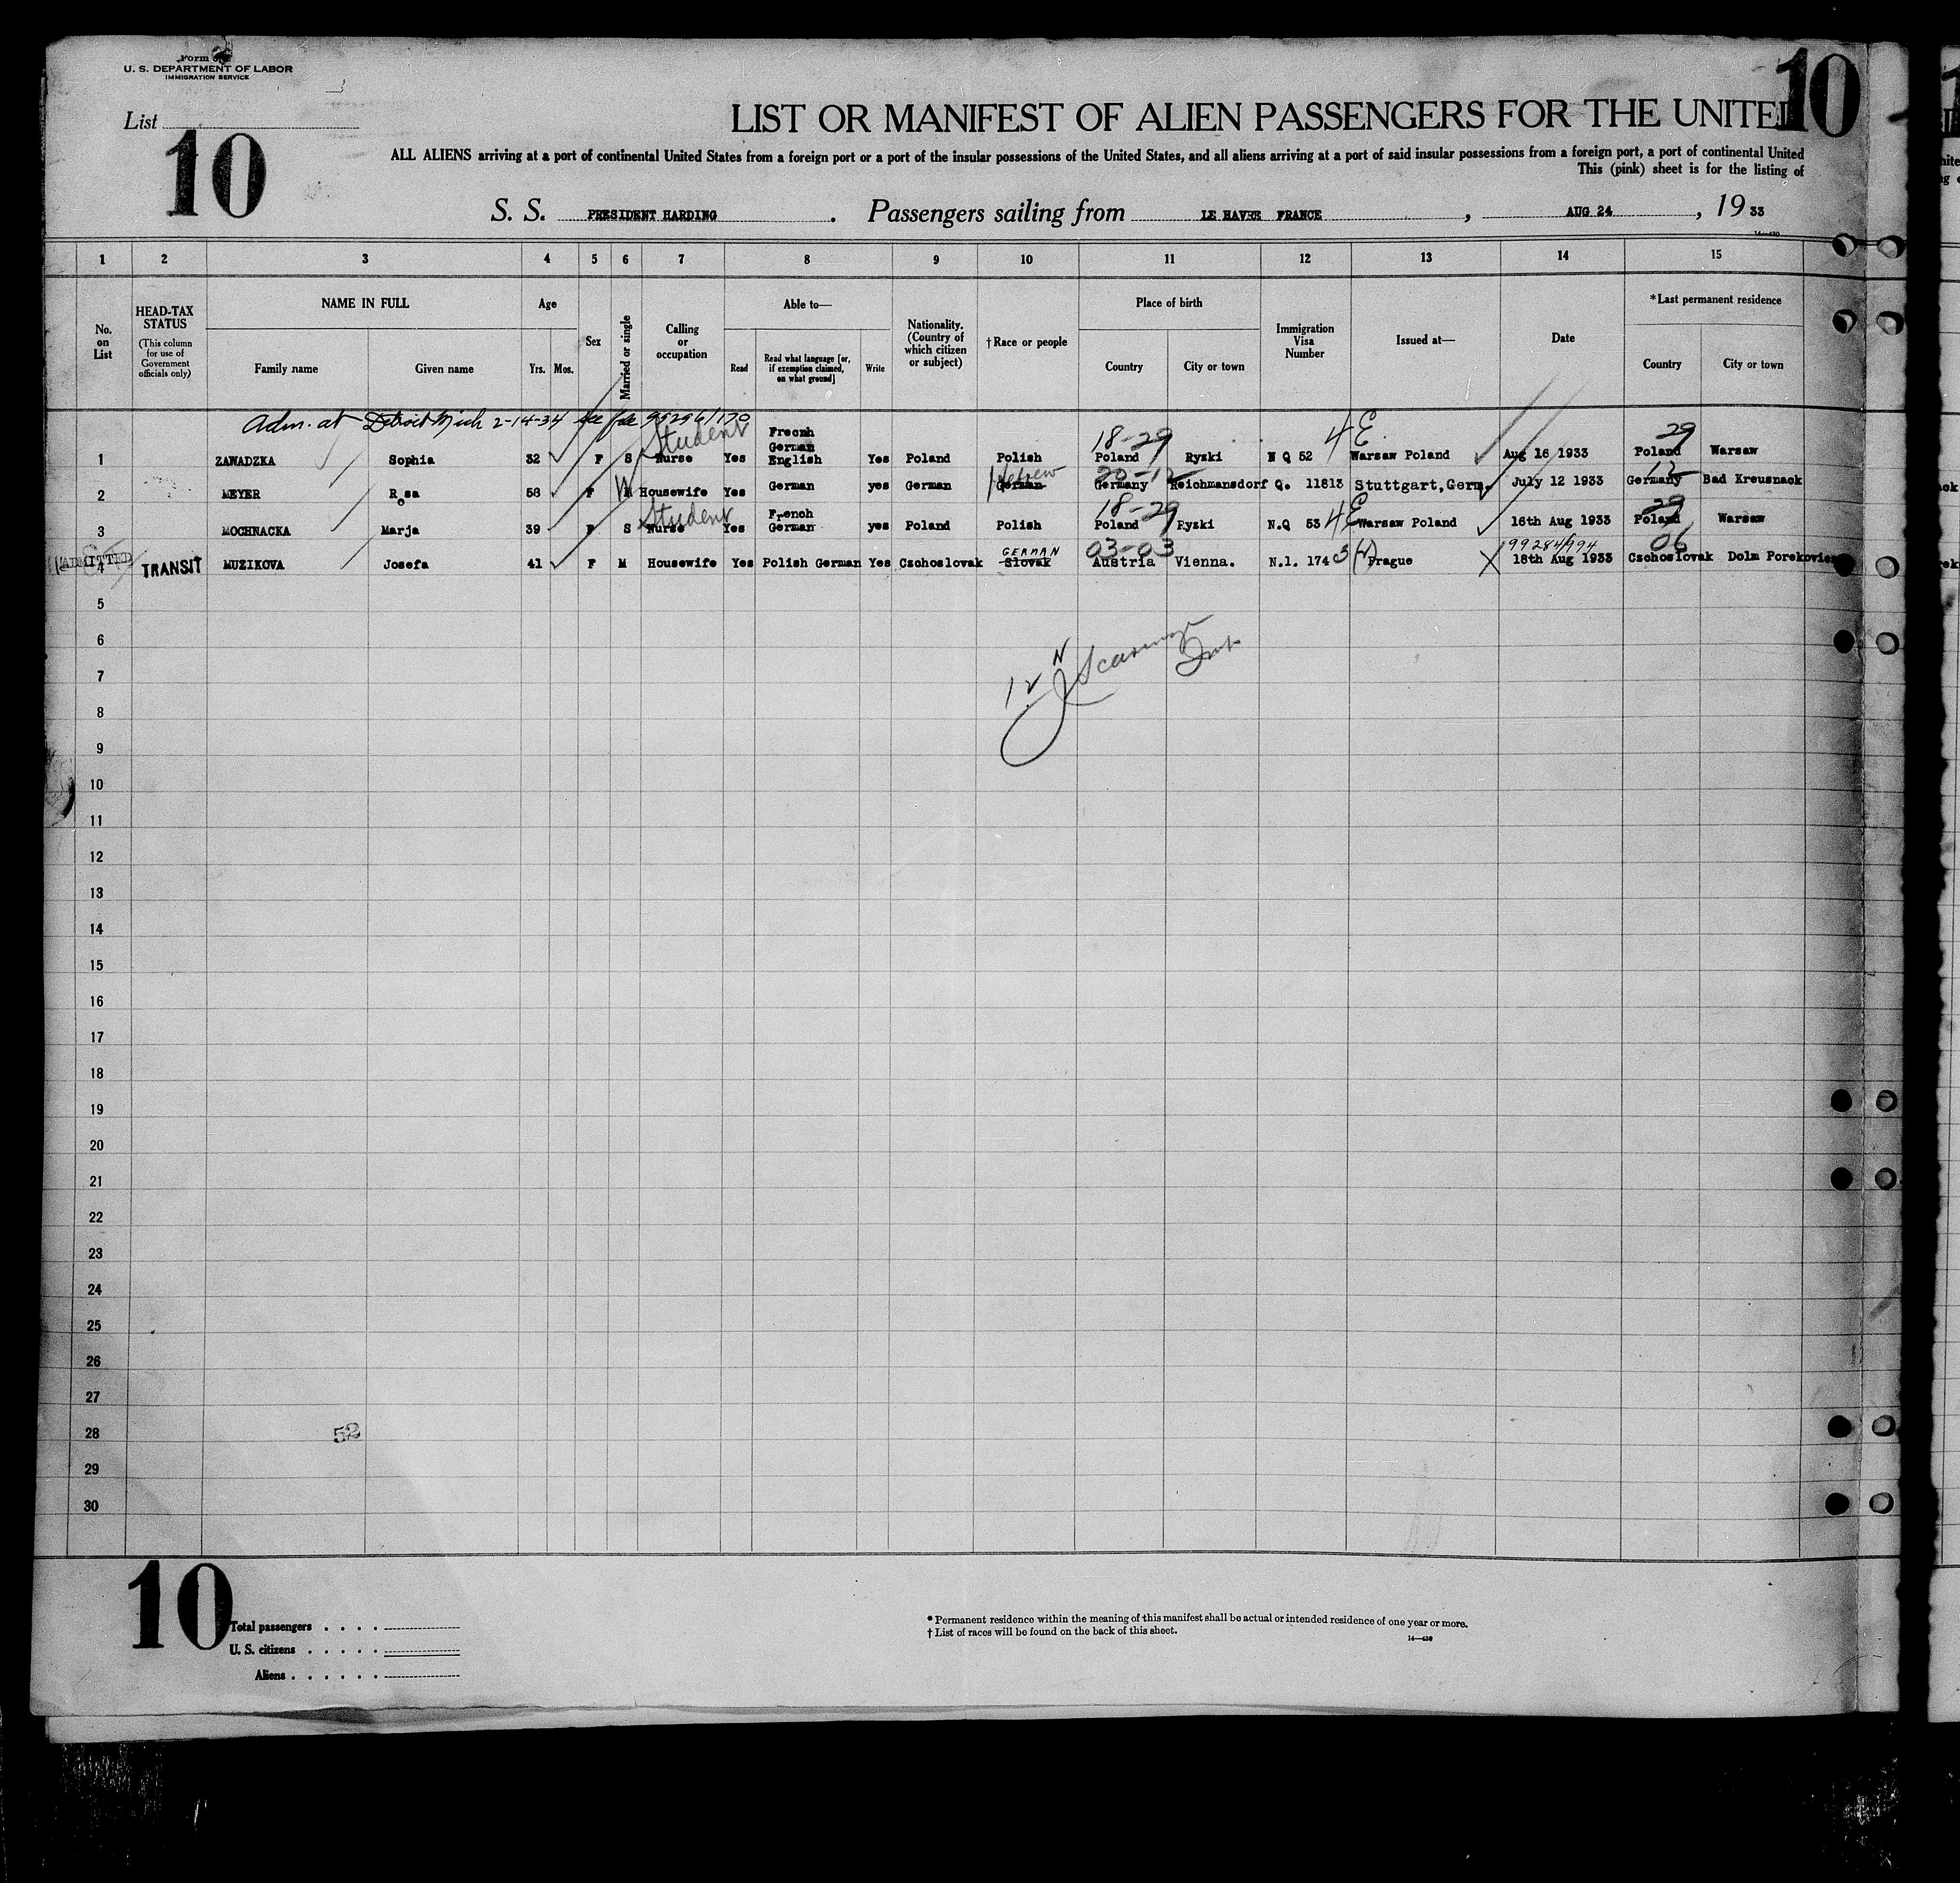 Form
U. S. DEPARTMENT OF LABOR
IMMIGRATION SERVICE
List
10
10
LIST OR MANIFEST OF ALIEN PASSENGERS FOR THE UNITED
ALL ALIENS arriving at a port of continental United States from a foreign port or a port of the insular possessions of the United States, and all aliens arriving at a port of said insular possessions from a foreign port, a port of continental United
This (pink) sheet is for the listing of
S. S. PRESIDENT HARDING . Passengers sailing from LE HAVRE FRANCE , AUG 24 , 19 33
14—430
1 2 3 4 5 6 7 8 9 10 11 12 13 14 15
No. on List
HEAD-TAX STATUS
(This column for use of Government officials only)
NAME IN FULL
Family name Given name
Age
Yrs. Mos.
Sex
Married or single
Calling or occupation
Able to—
Read
Read what language [or, if exemption claimed, on what ground]
Write
Nationality. (Country of which citizen or subject)
† Race or people
Place of birth
Country City or town
Immigration Visa Number
Issued at—
Date
*Last permanent residence
Country City or town
Adm. at Detroit Mich 2-14-34 see file 95296/170
Student 18-29 4E 29
1 ZAWADZKA Sophia 32 F S Nurse Yes Frecnh German English Yes Poland Polish Poland Ryzki N Q 52 Warsaw Poland Aug 16 1933 Poland Warsaw
Hebrew 20-12 12
2 MEYER Rosa 58 F W Housewife Yes German yes German German Germany Reichmansdorf Q. 11813 Stuttgart,Germ. July 12 1933 Germany Bad Kreusnack
Student 18-29 4E 29
3 MOCHNACKA Marja 39 F S Nurse Yes French German yes Poland Polish Poland Ryzki N.Q 53 Warsaw Poland 16th Aug 1933 Poland Warsaw
ADMITTED GERMAN 03-03 3(2) 99284/994 06
4 TRANSIT MUZIKOVA Josefa 41 F M Housewife Yes Polish German Yes Czchoslovak Slovak Austria Vienna. N.1. 174 Prague 18th Aug 1933 Czchoslovak Dolm Porekovice
5
6
7
12 N
8
9
10
11
12
13
14
15
16
17
18
19
20
21
22
23
24
25
26
27
28
52
29
30
10
Total passengers
U. S. citizens
Aliens
* Permanent residence within the meaning of this manifest shall be actual or intended residence of one year or more.
† List of races will be found on the back of this sheet.
14—430